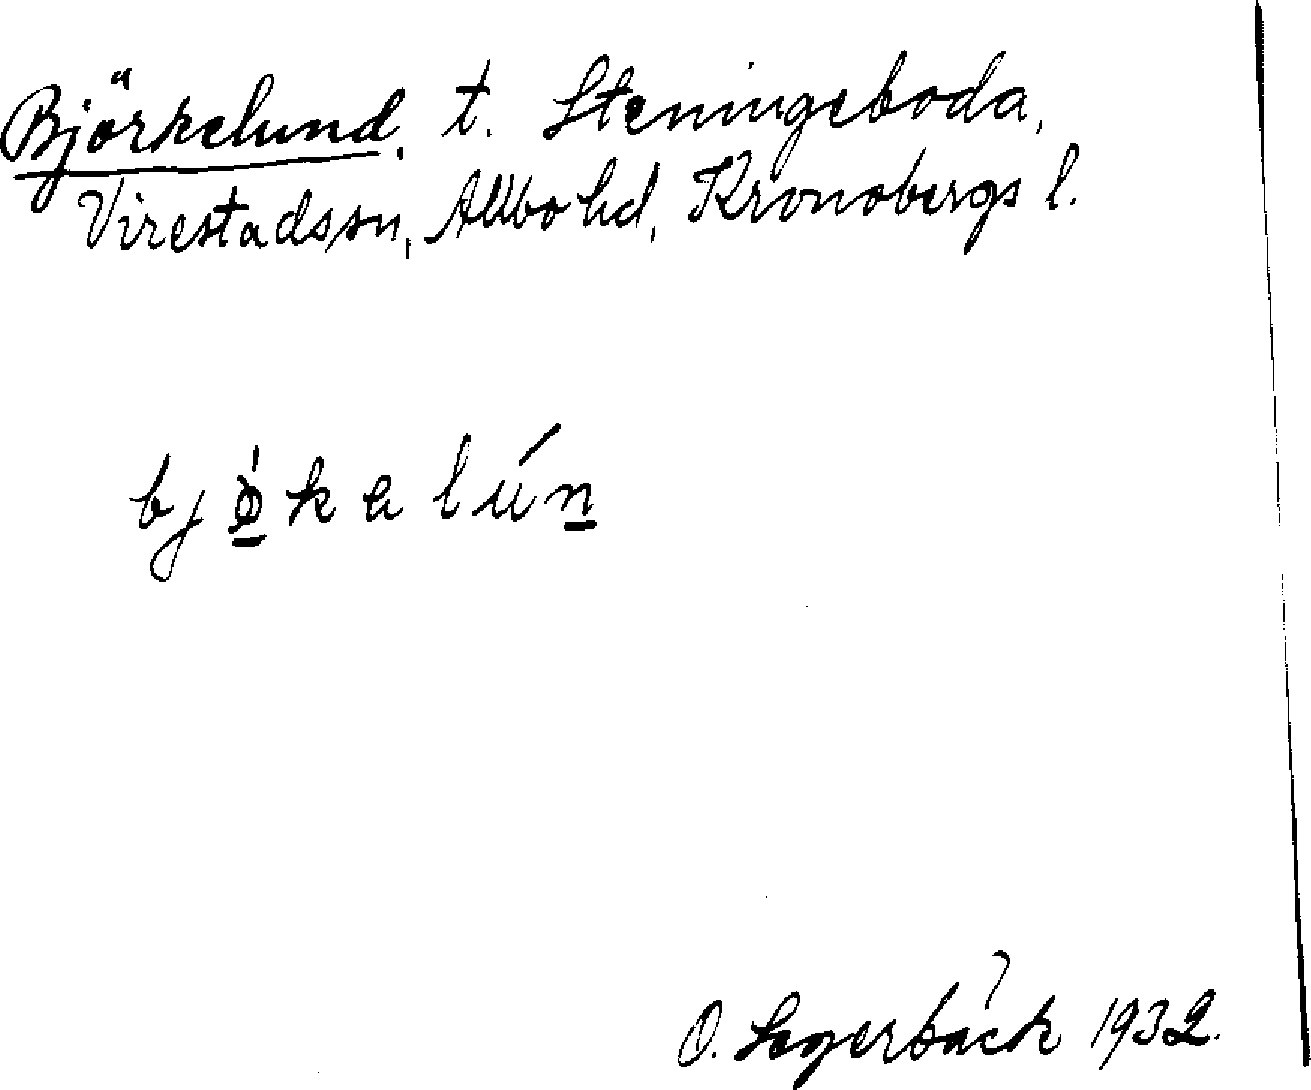 Björkelund, t. Steningeboda,
Virestads sn, Allbo hd, Kronobergs l.
bjö̱́kelúṉ
O. Segerbäck 1932.